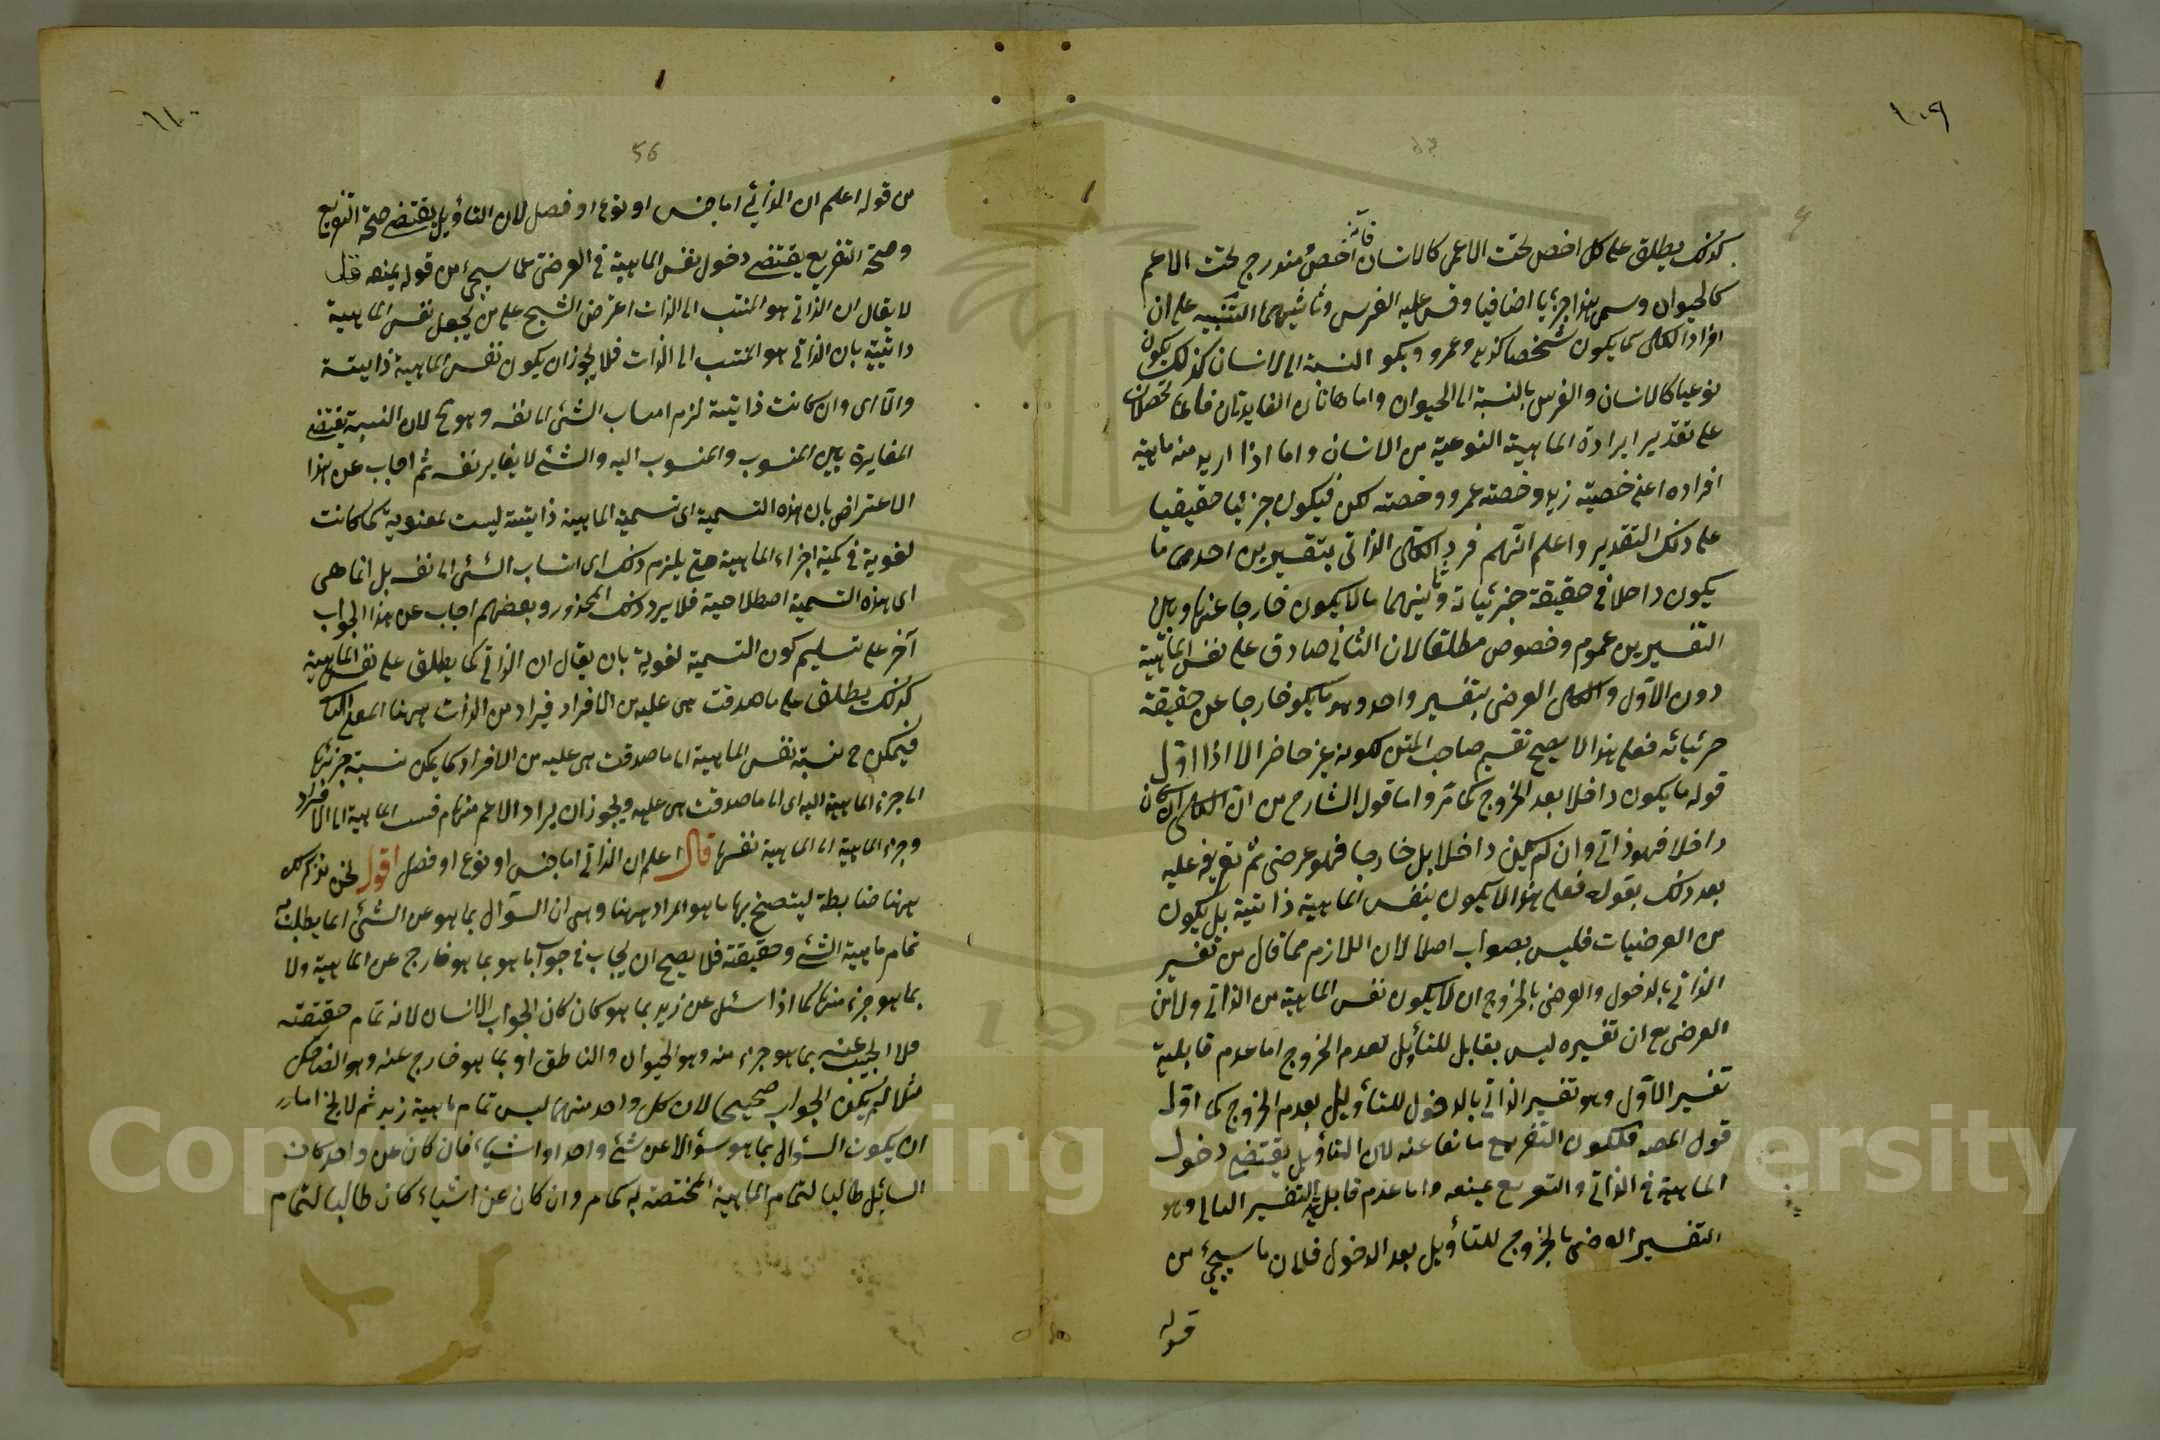 ١٠٩
كذلك يطلق على كل اخص تحت الاعم كالانسان فانه اخص مندرج تحت الاعم
كالحيوان وسمى هذا جزئيا اضافيا وقس عليه الفرس وثانيهما التنبيه على ان
افراد الكلى كما يكون شخصا كزيد وعمرو وبكر بالنسبة الى الانسان كذلك يكون
نوعيا كالانسان والفرس بالنسبة الى الحيوان واما هاتان الفايدتان فانما تحصلان
على تقدير ايرادة الماهية النوعية من الانسان واما اذا اريد منه ماهية
افراده اعنى خصية زيد وخصته عمرو وخصته بكر فيكون جزئيا حقيقيا
على ذلك التقدير واعلم انهم فرد الكلى الذاتى بتفسيرين احدهما ما
يكون داخلا في حقيقة جزئياته وثانيهما ما لا يكون خارجا عنها وبين
التفسيرين عموم وخصوص مطلقا لان الثانى صادق على نفس الماهية
دون الاول والكلى العرضى بتفسير واحد وهو ما يكون خارجا عن حقيقة
جزئياته فعلى هذا لا يصح تقسيم صاحب المتن لكونه غير حاضر الا اذا اول
قوله ما يكون داخلا بعد الخروج كما مر واما قول الشارح من ان الكلى ان كان
داخلا فهو ذاتى وان لم يكن داخلا بل خارجا فهو عرضى ثم تفريعه عليه
بعد ذلك بقوله فعلى هذا لا يكون بنفس الماهية ذاتية بل يكون
من العرضيات فليس بصواب اصلا لان اللازم مما قال من تفسير
الذاتى بالدخول والعرضى بالخروج ان لا يكون نفس الماهية من الذاتى ولا من
العرضى مع ان تفسيره ليس بقابل للتأويل لعدم الخروج اما عدم قابلية
تفسير الاول وهو تفسير الذاتى بالدخول للتأويل بعدم الخروج كما اول
قول المصه فلكون التفريع مانعا عنه لان التأويل يقتضى دخول
الماهية في الذاتى والتفريع يمنعه واما عدم قابلية التفسير الثانى وهو
التفسير العرضى بالخروج للتأويل بعد الدخول فلان ما سيجئ من
قوله
١١٠
56
من قوله اعلم ان الذاتى اما جنس او نوع او فصل لان التأويل يقتضى صحة التفريع
وصحة التفريع يقتضى دخول نفس الماهية في العرضى مما سيجئ من قوله يمنعه
لا يقال ان الذاتى هو المنتسب الى الذات اعترض الشيخ على من يجعل نفس الماهية
ذاتية بان الذاتى هو المنتسب الى الذات فلا يجوز ان يكون نفس الماهية ذاتية
والا اى وان كانت ذاتية لزم انتساب الشئ الى نفسه وهو مح لان النسبة يقتضى
المغايرة بين المنسوب والمنسوب اليه والشئ لا يغاير نفسه ثم اجاب عن هذا
الاعتراض بان هذه التسمية اى تسمية الماهية ذاتية ليست لمعنوية كما كانت
لغوية في تسمية اجزاء الماهية حتى يلزم ذلك اى انتساب الشئ الى نفسه بل انما هى
اى هذه التسمية اصطلاحية فلا يرد ذلك المحذور وبعضهم اجاب عن هذا الجواب
آخر على تسليم كون التسمية لغوية بان يقال ان الذاتى كما يطلق على نفس الماهية
كذلك يطلق على ما صدقت هى عليه من الافراد فيراد من الذات ههنا المعنى الثانى
فيمكن ح نسبة نفس الماهية الى ما صدقت هى عليه من الافراد كما يمكن نسبة جزئها
اى جزء الماهية اليه اى الى ما صدقت هى عليه ويجوز ان يراد الاعم منهما فنسب الماهية الى الافراد
وجزء الماهية الى الماهية نفسها قال اعلم ان الذاتى اما جنس او نوع او فصل اقول نحن نذكر لك
ههنا ضابطة ليتضح بها ما هو المراد ههنا وهى ان السؤال بما هو عن الشئ انما يطلب به
تمام ماهية الشئ وحقيقته فلا يصح ان يجاب في جواب ما هو بما هو خارج عن الماهية ولا
بما هو جزء منها كما اذا سئل عن زيد بما هو كان كان الجواب الانسان لانه تمام حقيقته
فلا يجيب عنه بما هو جزء منه وهو الحيوان والناطق او بما هو خارج عنه وهو الضاحك
مثلا لم يكن الجواب صحيحا لان كل واحد منهما ليس تمام ماهية زيد ثم لا يخ اما
ان يكون السؤال بما هو سؤالا عن شئ واحد او اشياء فان كان عن واحد كان
السايل طالبا لتمام الماهية المختصة به كما مر وان كان عن اشياء كان طالبا لتمام
Copyright © King Saud University
1957